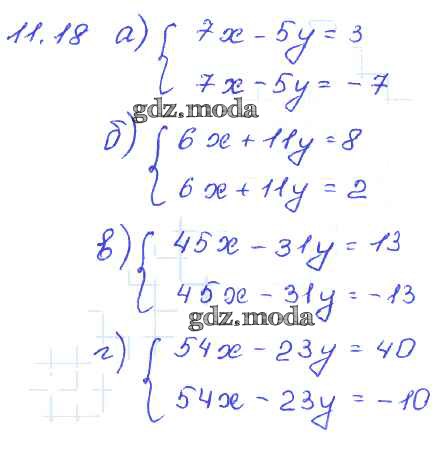 11.18 а) { 7x - 5y = 3
7x - 5y = -7
gdz.moda
б) { 6x + 11y = 8
6x + 11y = 2
в) { 45x - 31y = 13
45x - 31y = -13
gdz.moda
г) { 54x - 23y = 40
54x - 23y = -10